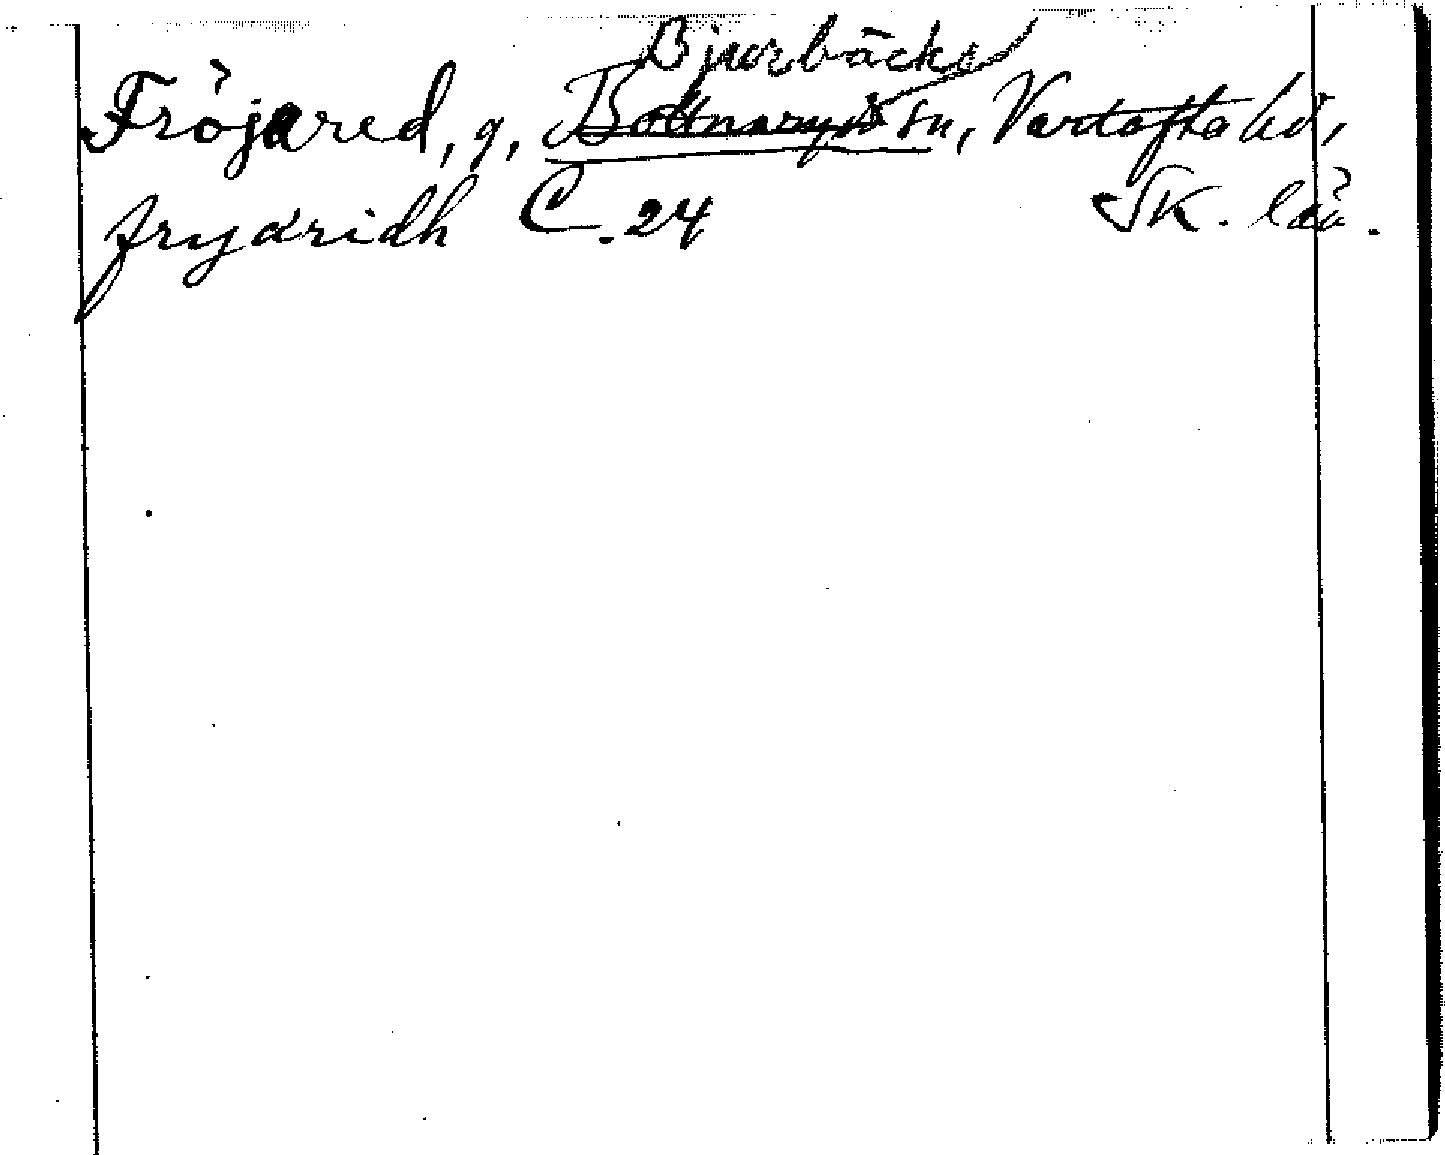 Bjurbäcks
Fröjared, g, Bottnaryds sn, Vartofta hd,
frydridh C. 24 Sk. län.